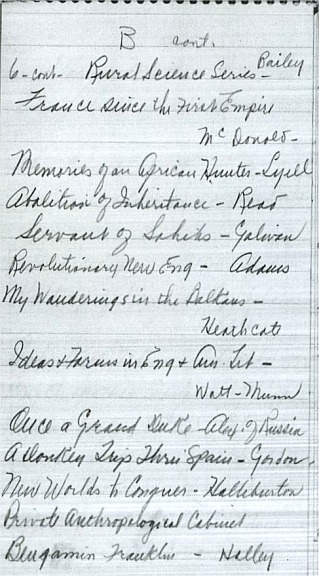 B cont.
6-cont- Rural Science Series - Bailey
France since the First Empire
McDonald-
Memories of an African Hunter - Lyell
Abolition of Inheritance - Read
Servant of Sahibs - Galwan
Revolutionary New Eng - Adams
My Wanderings in the Balkans -
Heathcote
Ideas & Forms in Eng & Am. Lit -
Watt - Munn
Once a Grand Duke - Alex. of Russia
A Donkey Trip Thru Spain - Gordon.
New Worlds to Conquer - Halliburton
Private Anthropological Cabinet
Bengamin Franklin - Halley